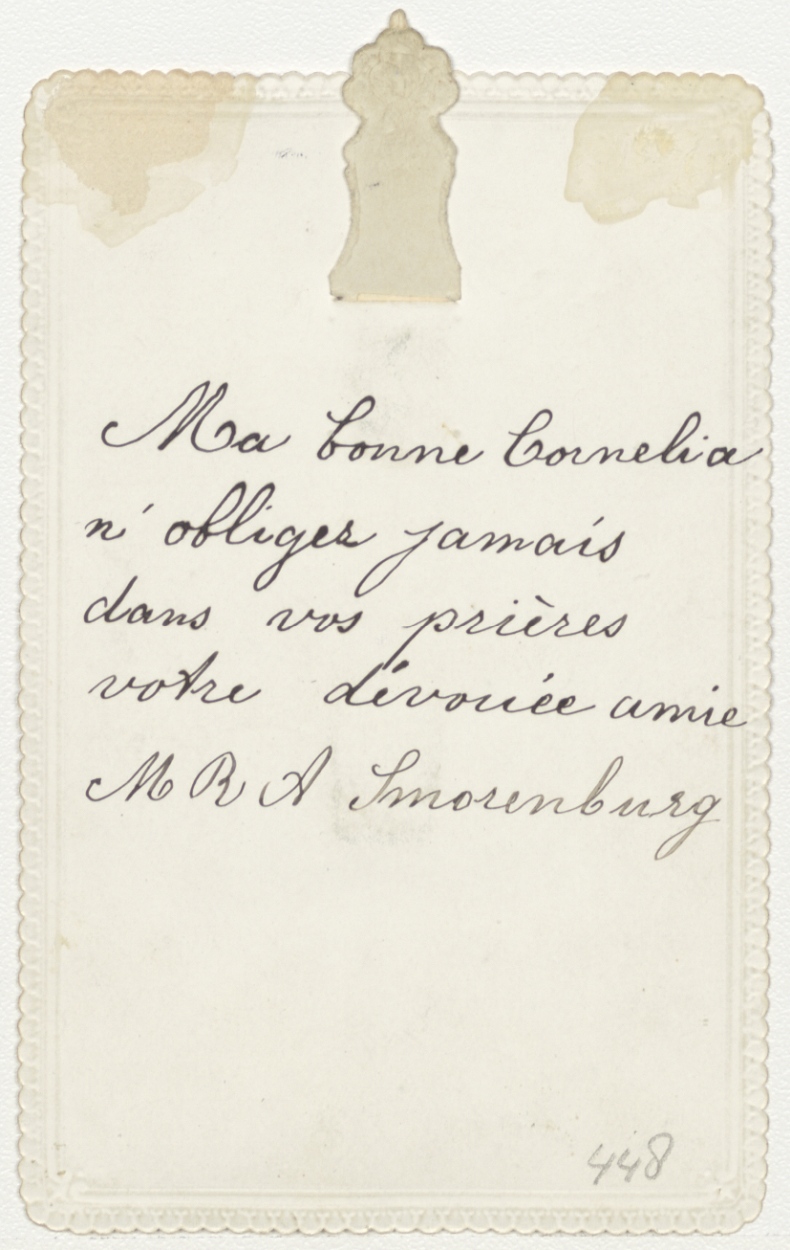 Ma bonne Cornelia
n' obligez jamais
dans vos prières
votre dévouée amie
M R A Smorenburg
448